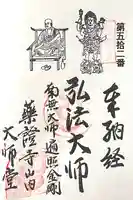 第五拾二番
奉納経
弘法大師
南無大師遍照金剛
薬證寺山内
大師堂